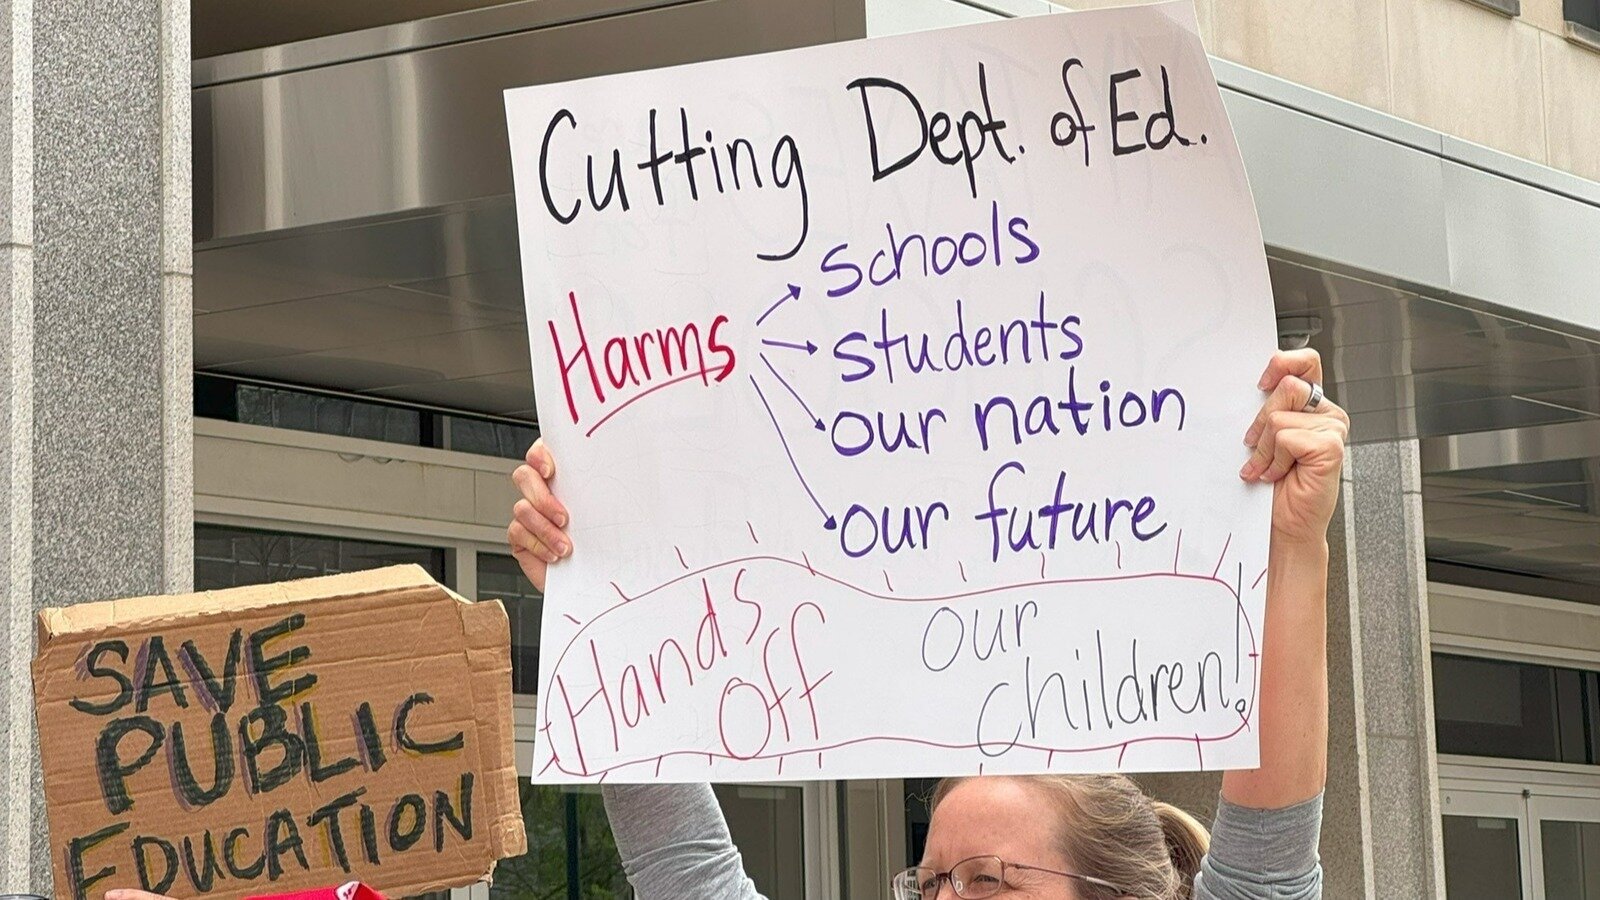 Cutting Dept. of Ed.
Harms
schools
students
our nation
our future
Hands
Off
our
children!
SAVE
PUBLIC
EDUCATION